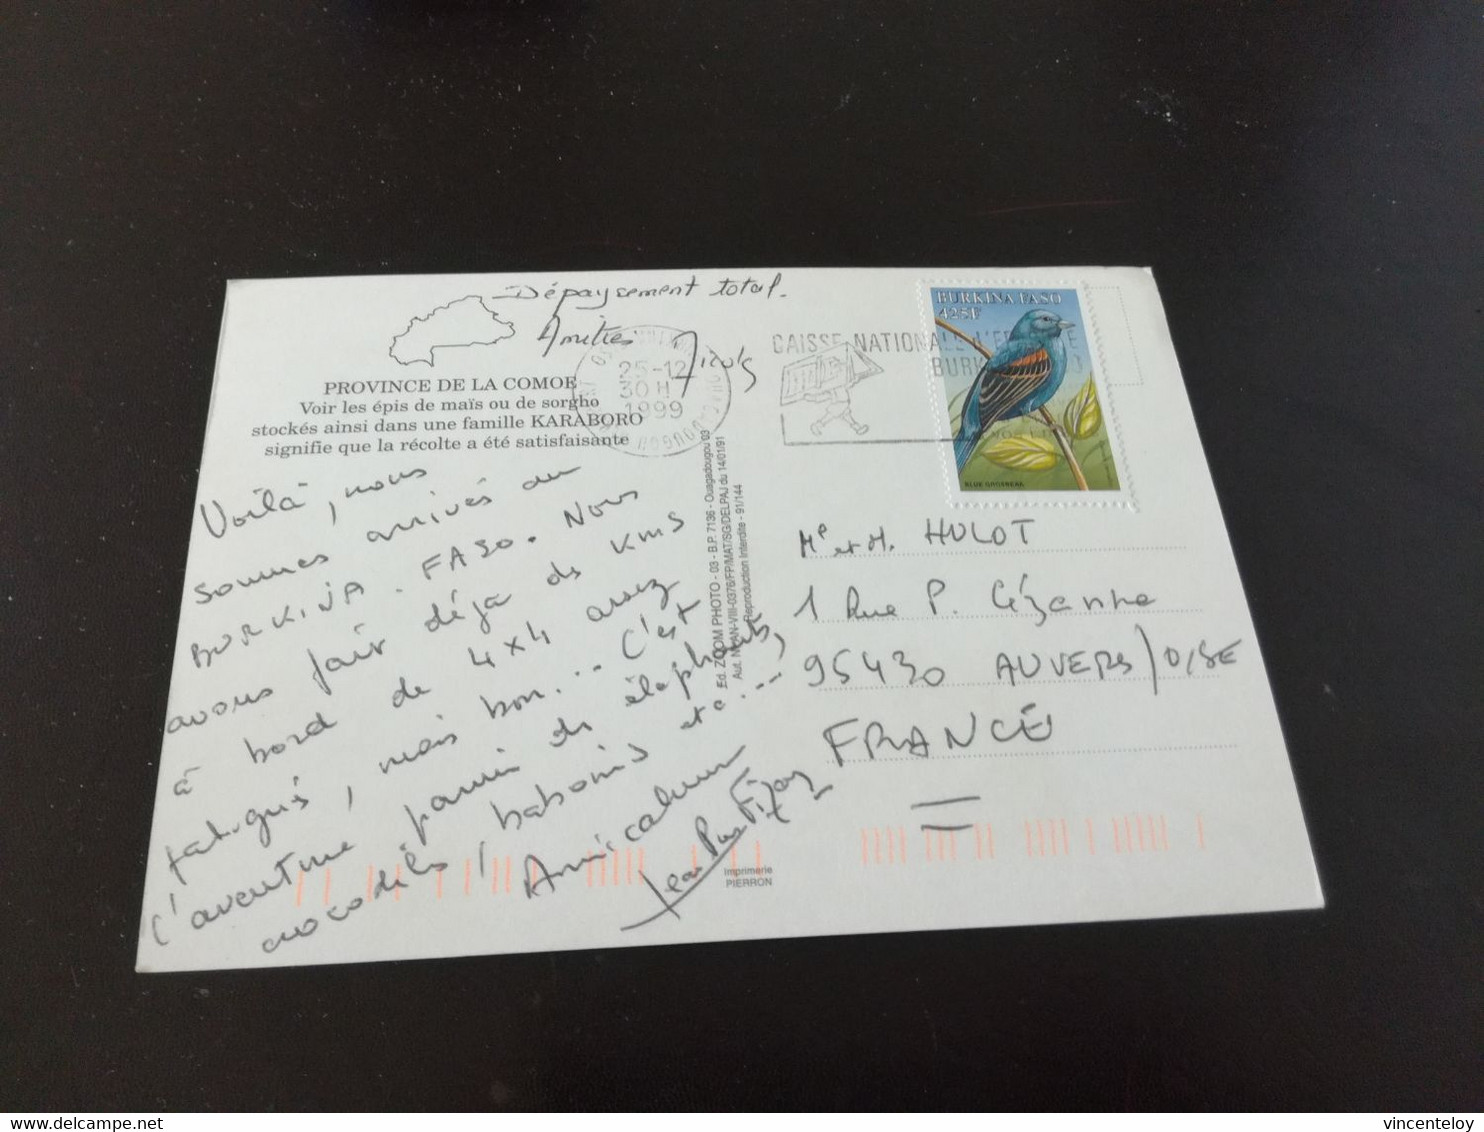 Dépaysement total.
Amitiés
PROVINCE DE LA COMOE
Voir les épis de maïs ou de sorgho
stockés ainsi dans une famille KARABORO
signifie que la récolte a été satisfaisante
25-12
30H
1999
OUAGADOUGOU
CAISSE NATIONALE D'EPARGNE
BURK
BURKINA FASO
425F
BLUE GROSBEAK
Voilà, nous
sommes arrivés au
BURKINA-FASO. Nous
avons fait déjà des kms
à bord de 4x4 assez
fatigués, mais bon... C'est
l'aventure parmi des éléphants,
crocodiles, babouins etc...
Amicalement
Jean Pierre
Ed. ZOOM PHOTO - 03 - B.P. 7136 - Ouagadougou 03
Aut. N° AN-VIII-0376/FP/MAT/SG/DELPAJ du 14/01/91
Reproduction Interdite - 91/144
Imprimerie
PIERRON
Me et M. HULOT
1 Rue P. Cézanne
95430 AUVERS/OISE
FRANCE
delcampe.net
vincenteloy